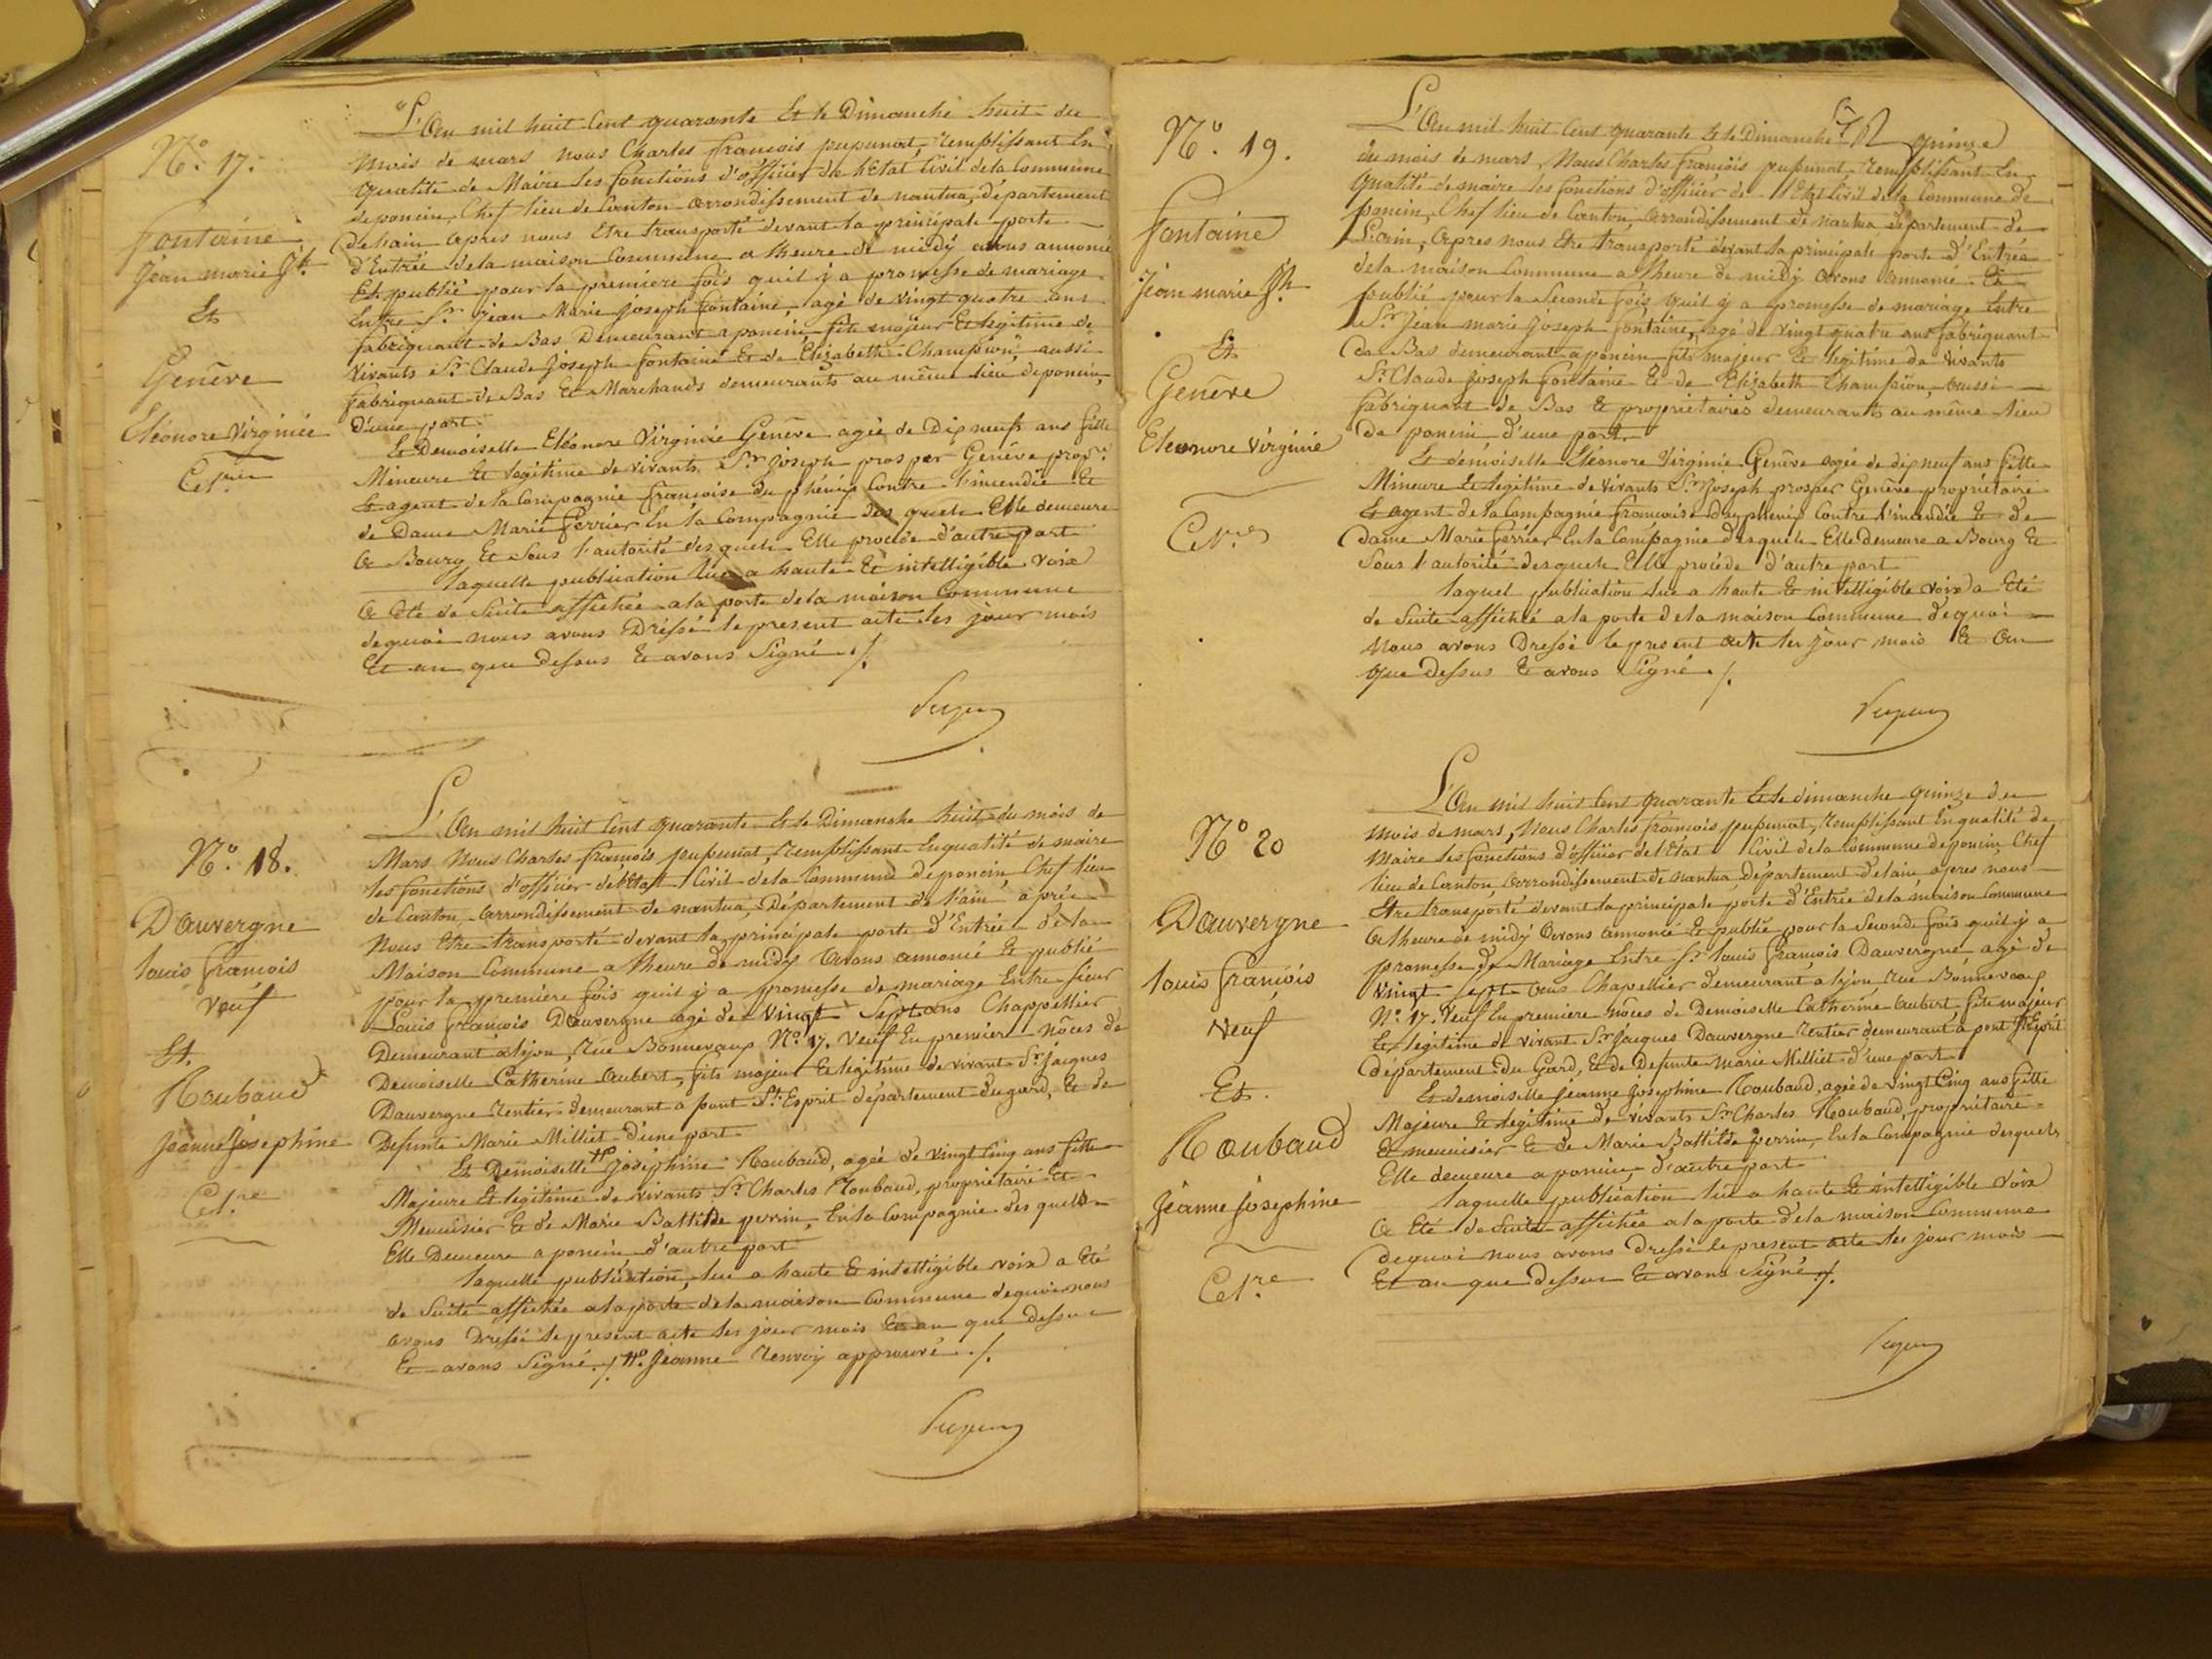 N.o 17.
fontaine
Jean marie Jh.
Et
Genêve
Eléonore Virginie
L'An mil huit Cent quarante Et le Dimanche huit du
mois de mars nous Charles françois pupunat, remplissant En
qualité de Maire les fonctions d'officier de l'Etat Civil de la Commune
de poncin, Chef lieu de Canton arrondissement de nantua, département
de l'ain apres nous Etre transporté devant la principale porte
d'Entrée de la maison Commune a l'heure de midy avons annoncé
Et publié pour la premiere fois quil y a promesse de mariage
Entre Sr. Jean Marie Joseph fontaine, agé de vingt quatre ans
fabriquant de Bas Demeurant a poncin fils majeur Et légitime de
vivants Sr. Claude Joseph fontaine Et de Elizabeth Champion, aussi
fabriquant de Bas Et Marchands demeurants au même lieu de poncin,
d'une part.
Et Demoiselle Eléonore Virginie Genêve agée de Dix neuf ans fille
Mineure Et légitime de vivants Sr. Joseph prosper Genêve propre.
Et agent de la Compagnie françoise du phénix Contre l'incendie Et
de Dame Marie ferrier En la Compagnie des quels Elle demeure
a Bourg Et Sous l'autorité des quels Elle procede d'autre part
laquelle publication lue a haute Et intelligible voix
a Eté de Suite affichée a la porte de la maison Commune
de quoi nous avons Dréssé le present acte les jour mois
Et an que dessus Et avons Signé ./.
N.o 18.
Dauvergne
louis françois
veuf
Et.
Roubaud
Jeanne Joséphine
L'An mil huit Cent quarante Et le Dimanche huit du mois de
Mars Nous Charles françois pupunat, remplissant En qualité de maire
les fonctions d'officier de l'Etat Civil de la Commune de poncin Chef lieu
de Canton arrondissement de nantua, Département de l'ain après
Nous Etre transporté devant la principale porte d'Entrée de la
Maison Commune a l'heure de midy avons annoncé Et publié
pour la premiere fois quil y a promesse de mariage Entre Sieur
Louis françois Dauvergne agé de vingt Sept ans Chappellier
Demeurant a lyon, Rue Bonnevaux No. 17. Veuf En premiere nôces de
Demoiselle Catherine Aubert, fils majeur Et légitime de vivant Sr. Jacques
Dauvergne rentier demeurant a pont St. Esprit département du gard, Et de
Defunte Marie Milliet d'une part
Et Demoiselle Joséphine Roubaud, agée de vingt Cinq ans fille
Majeure Et légitime de vivants Sr. Charles Roubaud, propriétaire Et
Menuisier Et de Marie Battilde perrin, En la Compagnie des quels
Elle Demeure a poncin d'autre part
laquelle publication lue a haute Et intelligible voix a Eté
de Suite affichée a la porte de la maison Commune de quoi nous
avons Dréssé le present acte les jour mois Et an que dessus
Et avons Signé ./. Jeanne renvoy approuvé ./.
N.o 19.
fontaine
Jean marie Jh.
Et
Genêve
Eleonore virginie
L'An mil huit Cent quarante Et le Dimanche quinze
du mois de mars, Nous Charles françois pupunat remplissant En
qualité de maire les fonctions d'officier de l'Etat Civil de la Commune de
poncin, Chef lieu de Canton, arrondissement de nantua département de
L'ain, Apres nous Etre transporté devant la principale porte d'Entrée
de la maison Commune a l'heure de midy avons annoncé Et
publié pour la Seconde fois quil y a promesse de mariage Entre
Sr. Jean marie Joseph fontaine, agé de vingt quatre ans fabriquant
de Bas demeurant a poncin fils majeur Et légitime de vivants
Sr. Claude Joseph fontaine Et de Elizabeth Champion aussi
fabriquant de Bas Et propriétaires demeurants au même lieu
de poncin d'une part.
Et demoiselle Eléonore Virginie Genêve agée de dix neuf ans fille
Mineure Et légitime de vivants Sr. Joseph prosper Genêve propriétaire
Et agent de la Compagnie françoise du phenix Contre l'incendie Et de
Dame Marie ferrier En la Compagnie desquels Elle demeure a Bourg Et
Sous l'autorité desquels Elle procède d'autre part
laquel publication lue a haute Et intelligible voix a Eté
de Suite affiché a la porte de la maison Commune de quoi
Nous avons Dressé le present acte les jour mois Et an
que dessus Et avons Signé ./.
No 20
Dauvergne
louis françois
veuf
Et.
Roubaud
Jéanne Joséphine
L'An mil huit Cent quarante Et le dimanche quinze du
mois de mars, Nous Charles françois pupunat, remplissant En qualité de
Maire les fonctions d'officier de l'Etat Civil de la Commune de poncin Chef
lieu de Canton, arrondissement de nantua Département de l'ain apres nous
Etre transporté devant la principale porte d'Entrée de la maison Commune
a l'heure de midy avons annoncé Et publié pour la Seconde fois quil y a
promesse de Mariage Entre Sr. louis françois Dauvergne agé de
vingt Sept ans Chapellier demeurant a lyon Rue Bonnevaux
No. 17. veuf En premiere nôces de Demoiselle Catherine Aubert fils majeur
Et légitime de vivant Sr. Jacques Dauvergne rentier demeurant a pont St. Esprit
département du Gard, Et de Defunte Marie Milliet d'une part
Et demoiselle Jéanne Joséphine Roubaud, agée de vingt Cinq ans fille
Majeure Et légitime de vivants Sr. Charles Roubaud, propriétaire
Et menuisier Et de Marie Battilde perrin, En la Compagnie desquels
Elle demeure a poncin d'autre part
laquelle publication lue a haute Et intelligible voix
a Eté de Suite affichée a la porte de la maison Commune
de quoi nous avons dressé le present acte les jour mois
Et an que dessus Et avons Signé ./.